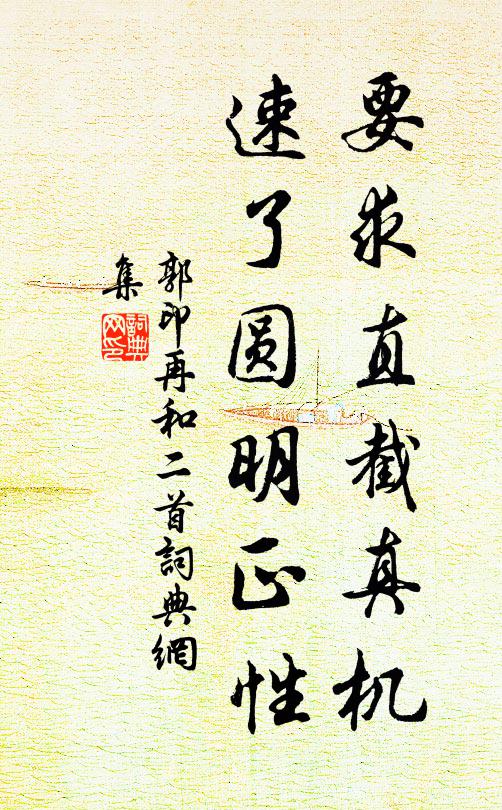 要求直截真机
速了圆明正性
郭印再和二首詞典網
集
詞典
网印